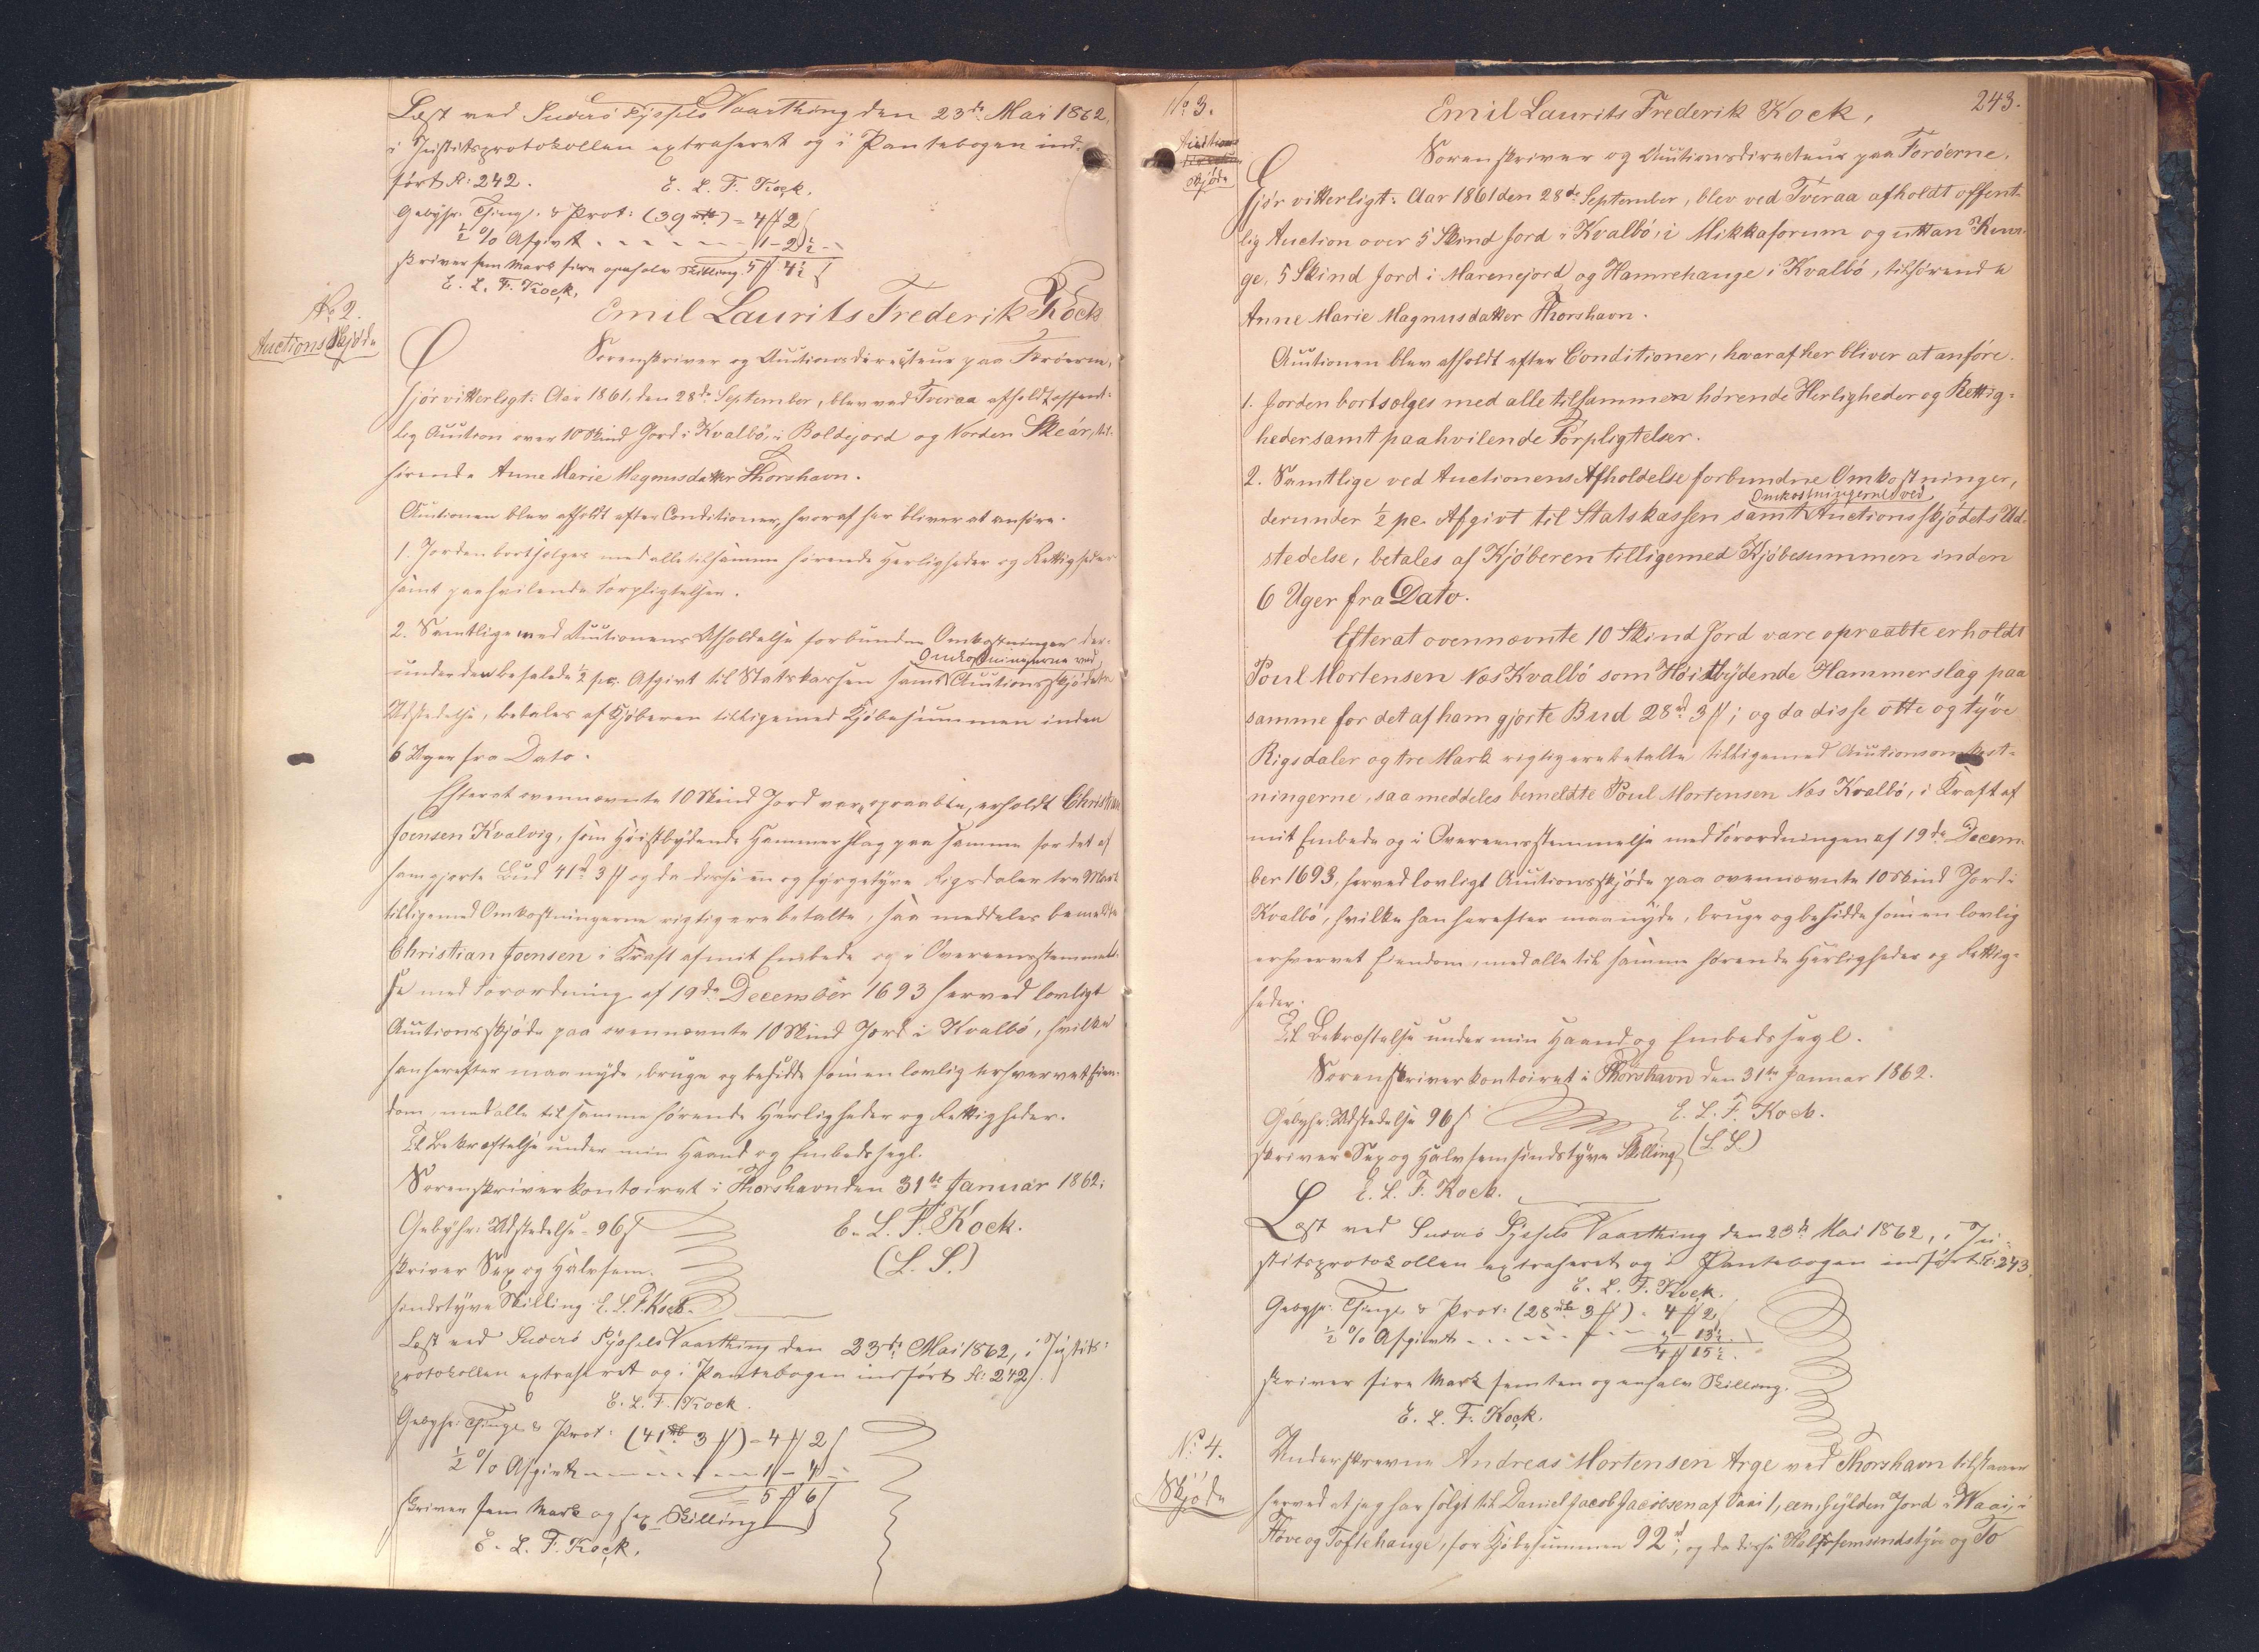 Læst ved Suderø Syssels Vaarthing den 23de Mai 1862,
i Justitsprotokollen extraheret og i Pantebogen ind-
ført fo: 242.
E. L. F. Kock.
Gebyhr: Thingl. & Prot: (39 rd) = 4 ℔ 2 ſ
½ % Afgivt - - - - 1 - 2½ -
skriver fem Mark fire og en halv Skilling 5 ℔ 4½ ſ
E. L. F. Kock.
No 2.
Auctions Skjøde
Emil Laurits Frederik Kock
Sorenskriver og Auctionsdirecteur paa Færøerne,
Gjør vitterligt: Aar 1861, den 28de September, blev ved Tveraa afholdt offent-
lig Auction over 10 Skind Jord i Kvalbø, i Boldejord og Norden Skeår, til-
hørende Anne Marie Magnusdatter Thorshavn.
Auctionen blev afholdt efter Conditioner, hvoraf her bliver at anføre.
1. Jorden bortsælges med alle tilsamme hørende Herligheder og Rettigheder
samt paahvilende Forpligtelser.
2. Samtlige med Auctionens Afholdelse forbundne Omkostninger der-
Omkostningerne ved
under den befalede ½ pc. Afgivt til Statskassen samt Auctionsskjødets
Udstedelse, betales af Kjøberen tilligemed Kjøbesummen inden
6 Uger fra Dato.
Efterat ovennævnte 10 Skind Jord var opraabte, erholdt Christian
Joensen Kvalvig, som Høistbydende Hammerslag paa samme for det af
ham gjorte Bud 41rd 3 ℔ og da disse en og fyrgetyve Rigsdaler tre Mark
tilligemed Omkostningerne rigtig ere betalte, saa meddeles bemeldte
Christian Joensen i Kraft af mit Embede og i Overeensstemmel-
se med Forordning af 19de December 1693 herved lovligt
Auctionsskjøde paa ovennævnte 10 Skind Jord i Kvalbø, hvilke
han herefter maa nyde, bruge og besidde som en lovlig erhvervet Eien-
dom, med alle til samme hørende Herligheder og Rettigheder.
Til Bekræftelse under min Haand og Embedssegl.
Sorenskriverkontoiret i Thorshavn den 31te Januar 1862.
Gebyhr: Udstedelse - 96 ſ
E. L. F. Kock.
skriver Sex og Halvfem-
(L. S.)
sindstyve Skilling. E. L. F. Kock.
Læst ved Suderø Syssels Vaarthing den 23de Mai 1862, i Justits-
protokollen extraheret og i Pantebogen indført fo: 242.
E. L. F. Kock.
Gebyhr: Thingl. & Prot: (41 rd 3 ℔) = 4 ℔ 2 ſ
½ % Afgivt - - - - 1 - 4 -
= 5 ℔ 6 ſ
skriver fem Mark og sex Skilling
E. L. F. Kock.
243.
No 3.
Auctions
Skjøde
Emil Laurits Frederik Kock,
Sorenskriver og Auctionsdirecteur paa Færøerne,
Gjør vitterligt: Aar 1861 den 28de September, blev ved Tveraa afholdt offent-
lig Auction over 5 Skind Jord i Kvalbø, i Mikkaforum og uttan Ren-
ge, 5 Skind Jord i Marenejord og Hamrehauge i Kvalbø, tilhørende
Anne Marie Magnusdatter Thorshavn.
Auctionen blev afholdt efter Conditioner, hvoraf her bliver at anføre.
1. Jorden bortsælges med alle tilsammen hørende Herligheder og Rettig-
heder samt paahvilende Forpligtelser.
2. Samtlige ved Auctionens Afholdelse forbundne Omkostninger,
Omkostningerne ved
derunder ½ pc. Afgivt til Statskassen samt Auctionsskjødets Ud-
stedelse, betales af Kjøberen tilligemed Kjøbesummen inden
6 Uger fra Dato.
Efterat ovennævnte 10 Skind Jord vare opraabte erholdt
Poul Mortensen Næs Kvalbø som Høistbydende Hammerslag paa
samme for det af ham gjorte Bud 28rd 3 ℔; og da disse otte og tyve
Rigsdaler og tre Mark rigtig ere betalte tilligemed Auctionsomkost-
ningerne, saa meddeles bemeldte Poul Mortensen Næs Kvalbø, i Kraft af
mit Embede og i Overeensstemmelse med Forordningen af 19de Decem-
ber 1693, herved lovligt Auctionsskjøde paa ovennævnte 10 Skind Jord i
Kvalbø, hvilke han herefter maa nyde, bruge og besidde som en lovlig
erhvervet Eiendom, med alle til samme hørende Herligheder og Rettig-
heder.
Til Bekræftelse under min Haand og Embedssegl.
Sorenskriverkontoiret i Thorshavn den 31te Januar 1862.
Gebyhr: Udstedelse 96 ſ
E. L. F. Kock.
skriver Sex og Halvfemsindstyve Skilling
(L. S.)
E. L. F. Kock.
Læst ved Suderø Syssels Vaarthing den 23de Mai 1862, i Ju-
stitsprotokollen extraheret og i Pantebogen indført fo: 243.
E. L. F. Kock.
Gebyhr: Thingl. & Prot: (28 rd 3 ℔) = 4 ℔ 2 ſ
½ % Afgivt - - - - " - 13½ -
4 ℔ 15½
skriver fire Mark femten og en halv Skilling.
E. L. F. Kock.
No 4.
Skjøde
Underskrevne Andreas Mortensen Arge ved Thorshavn tilstaaer
herved at jeg har solgt til Daniel Jacob Jacobsen af Vaai 1, een, Gylden Jord i Waai, i
Høve og Toftehauge, for Kjøbesummen 92rd, og da disse Halvfemsindstyve og To